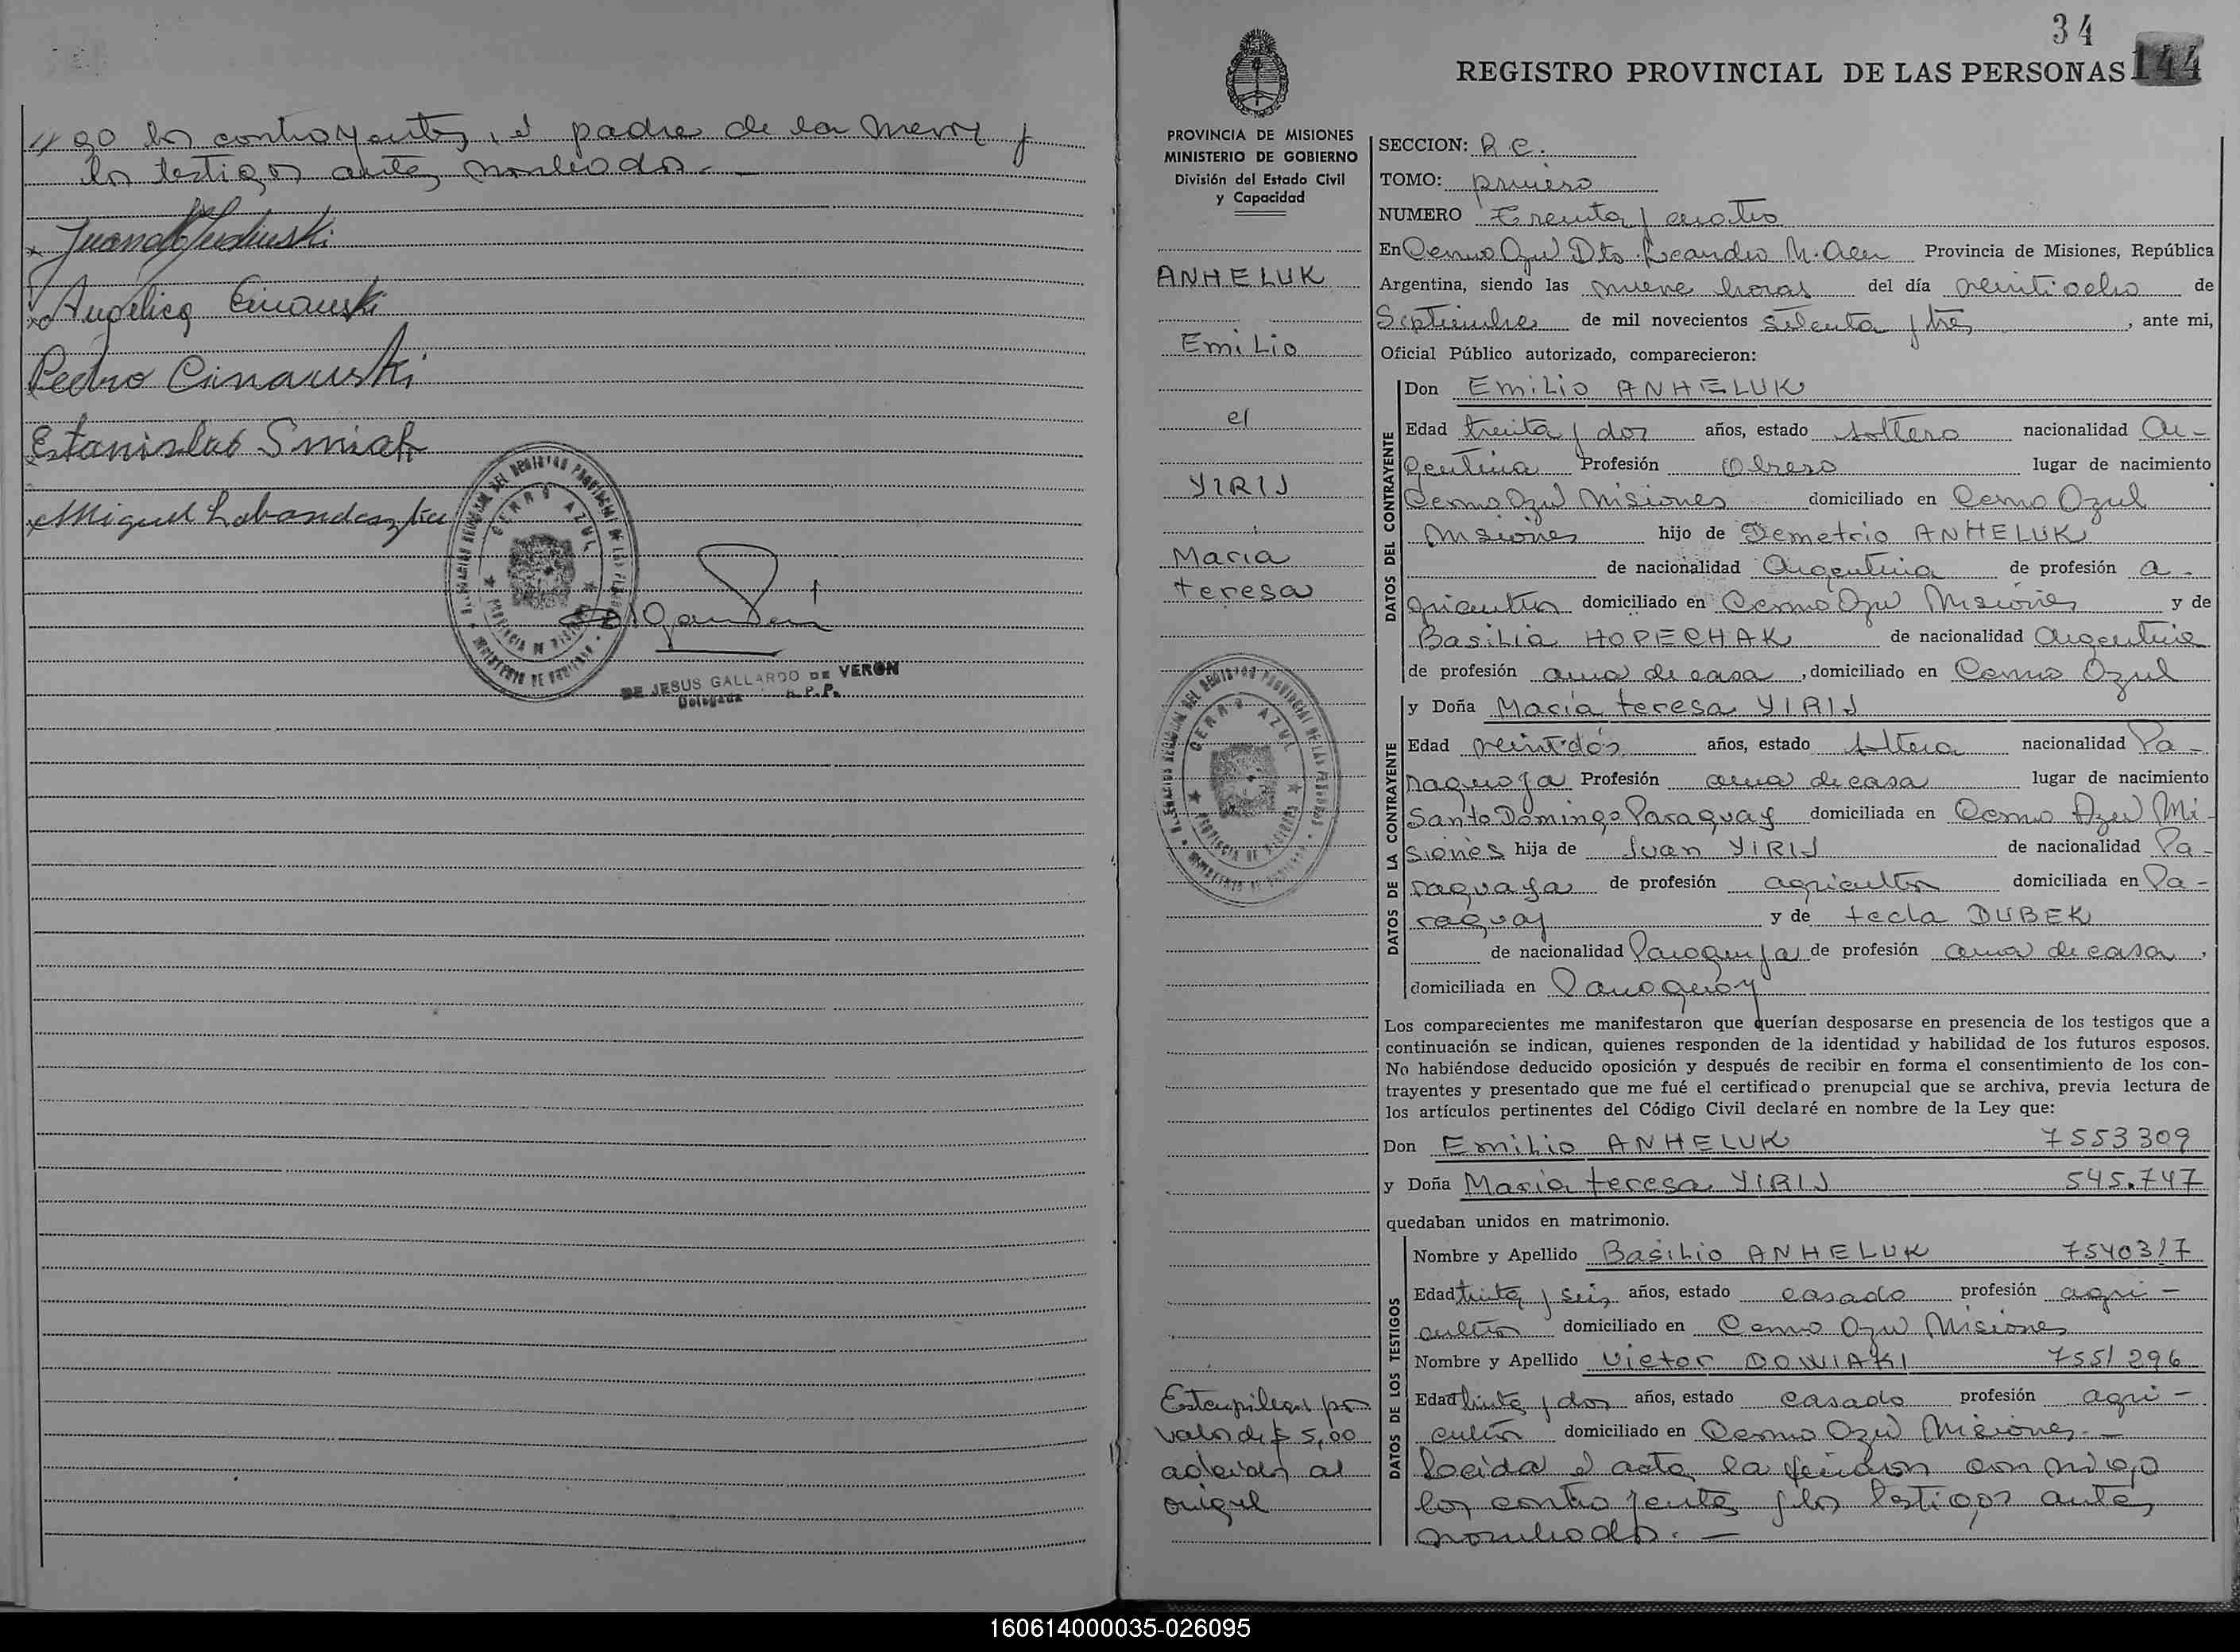 go los contrayentes, el padre de la menor y
los testigos antes nombrados.-
Angelica Cinauski
Pedro Cinauski
Estanislao Smiak
Miguel
CERRO AZUL
PROVINCIA DE MISIONES
DE JESUS GALLARDO DE VERON
Delegada R.P.P.
34
REGISTRO PROVINCIAL DE LAS PERSONAS 144
PROVINCIA DE MISIONES
MINISTERIO DE GOBIERNO
División del Estado Civil
y Capacidad
ANHELUK
Emilio
c/
YIRIJ
Maria
teresa
CERRO AZUL
PROVINCIA DE MISIONES
Estampillas por
valor de $ 5,00
adheridas al
original
SECCION: R.C.
TOMO: primero
NUMERO Treinta y cuatro
En Cerro Azul Dto. Leandro N. Alem Provincia de Misiones, República
Argentina, siendo las nueve horas del día veintiocho de
Septiembre de mil novecientos setenta y tres, ante mi,
Oficial Público autorizado, comparecieron:
DATOS DEL CONTRAYENTE
Don Emilio ANHELUK
Edad treinta y dos años, estado soltero nacionalidad Ar-
gentina Profesión Obrero lugar de nacimiento
Cerro Azul Misiones domiciliado en Cerro Azul
Misiones hijo de Demetrio ANHELUK
de nacionalidad Argentina de profesión a-
gricultor domiciliado en Cerro Azul Misiones y de
Basilia HOPECHAK de nacionalidad Argentina
de profesión ama de casa, domiciliado en Cerro Azul
DATOS DE LA CONTRAYENTE
y Doña María teresa YIRIJ
Edad veintidós años, estado soltera nacionalidad Pa-
raguaya Profesión ama de casa lugar de nacimiento
Santo Domingo Paraguay domiciliada en Cerro Azul Mi-
siones hija de Juan YIRIJ de nacionalidad Pa-
raguaya de profesión agricultor domiciliada en Pa-
raguay y de tecla DUBEK
de nacionalidad Paraguaya de profesión ama de casa,
domiciliada en Paraguay
Los comparecientes me manifestaron que querían desposarse en presencia de los testigos que a
continuación se indican, quienes responden de la identidad y habilidad de los futuros esposos.
No habiéndose deducido oposición y después de recibir en forma el consentimiento de los con-
trayentes y presentado que me fué el certificado prenupcial que se archiva, previa lectura de
los artículos pertinentes del Código Civil declaré en nombre de la Ley que:
Don Emilio ANHELUK 7553309
y Doña María teresa YIRIJ 545.747
quedaban unidos en matrimonio.
DATOS DE LOS TESTIGOS
Nombre y Apellido Basilio ANHELUK 7540317
Edad treinta y seis años, estado casado profesión agri-
cultor domiciliado en Cerro Azul Misiones
Nombre y Apellido Victor DOWIAKI 7551296
Edad treinta y dos años, estado casado profesión agri-
cultor domiciliado en Cerro Azul Misiones.-
Leida el acta, la firman conmigo
los contrayentes y los testigos antes
nombrados.-
160614000035-026095